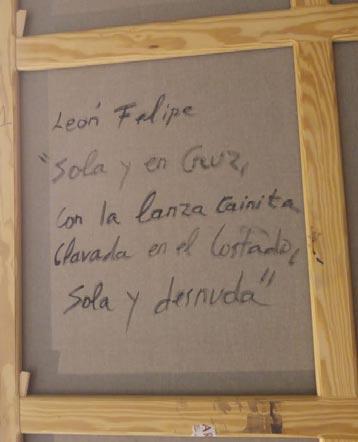 León Felipe
"Sola y en Cruz,
Con la lanza cainita
Clavada en el Costado,
Sola y desnuda"